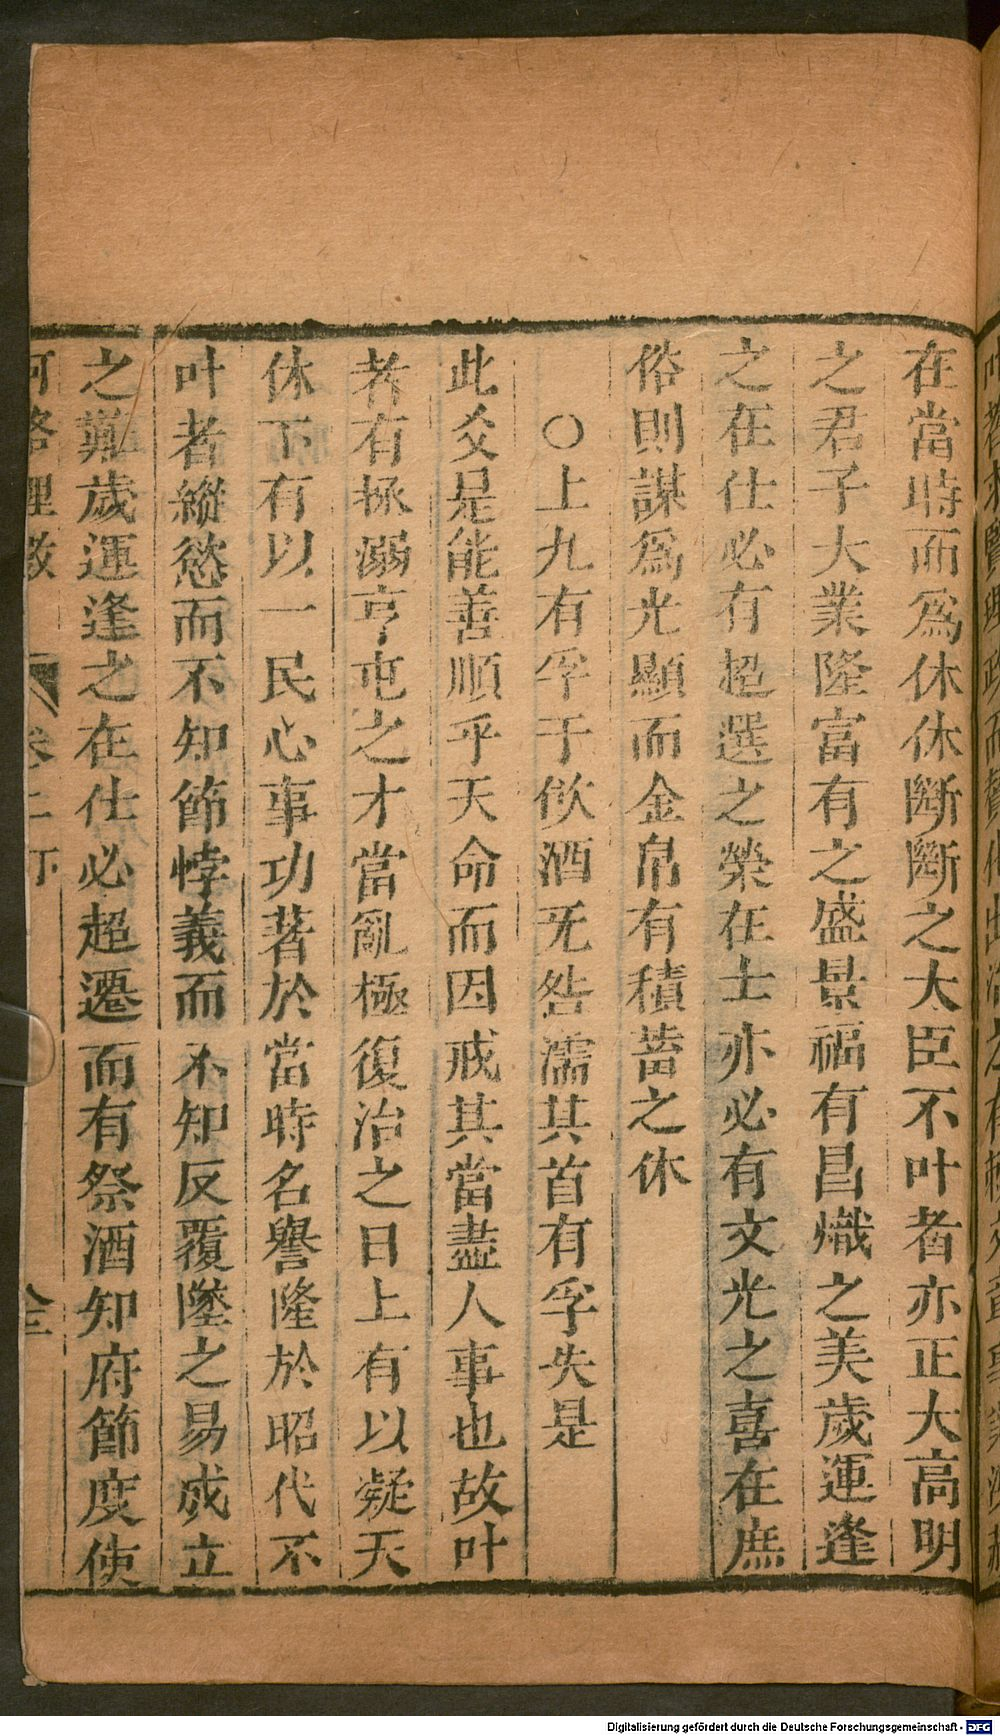 在當時而爲休休斷斷之大臣不叶者亦正大高明
之君子大業隆富有之盛景福有昌熾之美歲運逢
之在仕必有超選之榮在士亦必有文光之喜在庶
俗則謀爲光顯而金帛有積蓄之休
○上九有孚于飲酒无咎濡其首有孚失是
此爻是能善順乎天命而因戒其當盡人事也故叶
者有拯溺亨屯之才當亂極復治之日上有以凝天
休下有以一民心事功著於當時名譽隆於昭代不
叶者縱慾而不知節悖義而不知反覆墬之易成立
之難歲運逢之在仕必超遷而有祭酒知府節度使
河洛理數
卷二下
Digitalisierung gefördert durch die Deutsche Forschungsgemeinschaft - DFG